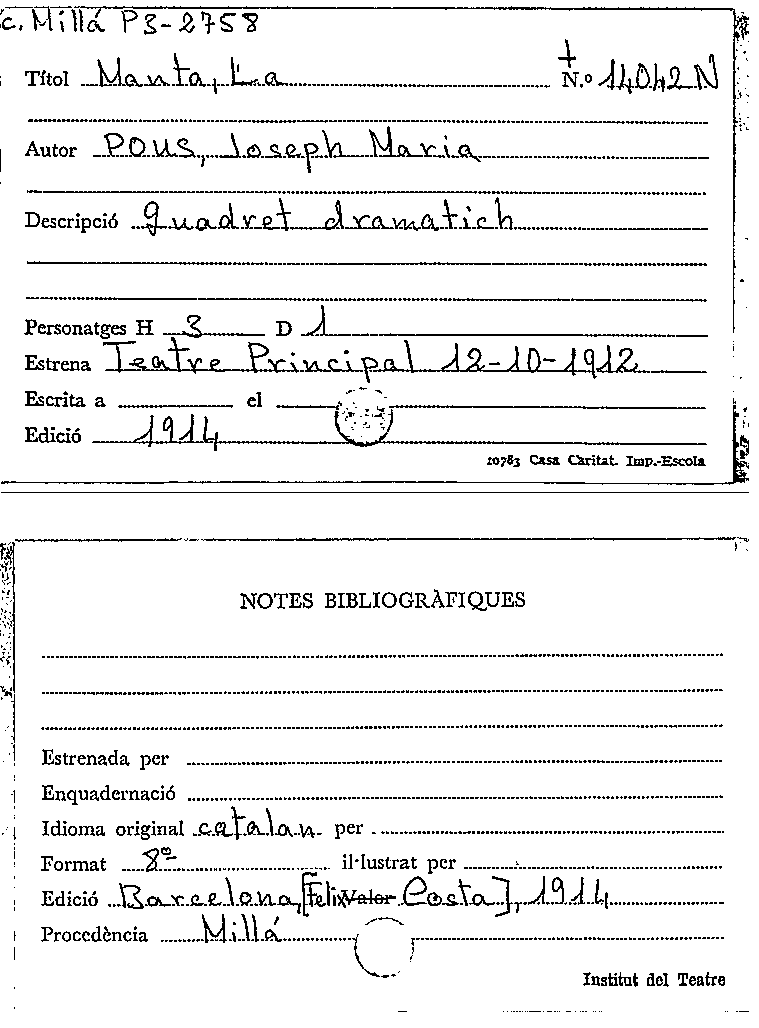 c. Millá P3-2758
Títol Manta, La N.º 14042 N
Autor POUS, Joseph Maria
Descripció quadret dramatich
Personatges H 3 D 1
Estrena Teatre Principal 12-10-1912
Escrita a el
Edició 1914
10783 Casa Caritat. Imp.-Escola
NOTES BIBLIOGRÀFIQUES
Estrenada per
Enquadernació
Idioma original catalan per
Format 8º il·lustrat per
Edició Barcelona, [Felix Valor Costa], 1914
Procedència Millá
Institut del Teatre